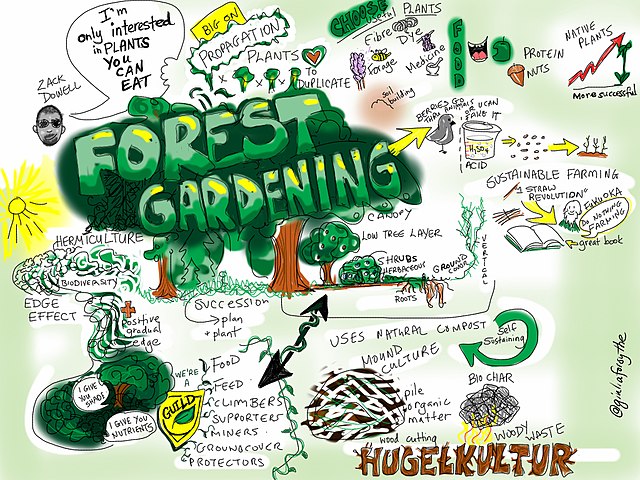 I'm
only interested
in PLANTS
YOU
CAN
EAT
ZACK
DOWELL
BIG ON
PROPAGATION
PLANTS
TO
DUPLICATE
CHOOSE
useful PLANTS
Fibre
Dye
Forage
Medicine
FOOD
PROTEIN
NUTS
NATIVE
PLANTS
More successful
soil
building
BERRIES GO
THRU ANIMALS OR U CAN
FAKE IT
H2SO4
ACID
FOREST
GARDENING
SUSTAINABLE FARMING
"1 STRAW
REVOLUTION"
FUKUOKA
DO NOTHING
FARMING
great book
CANOPY
LOW TREE LAYER
SHRUBS
HERBACEOUS
GROUND
COVER
ROOTS
VERTICAL
HERMICULTURE
BIODIVERSITY
EDGE
EFFECT
+ positive
gradual
edge
SUCCESSION
→ plan
+
plant
USES NATURAL COMPOST
Self
Sustaining
MOUND
CULTURE
pile
organic
matter
wood cutting
BIO CHAR
WOODY WASTE
HUGELKULTUR
I GIVE
YOU
SHADE
I GIVE YOU
NUTRIENTS
WE'RE
A
GUILD
FOOD
FEED
CLIMBERS
SUPPORTERS
MINERS
GROUNDCOVER
PROTECTORS
@giuliaforsythe